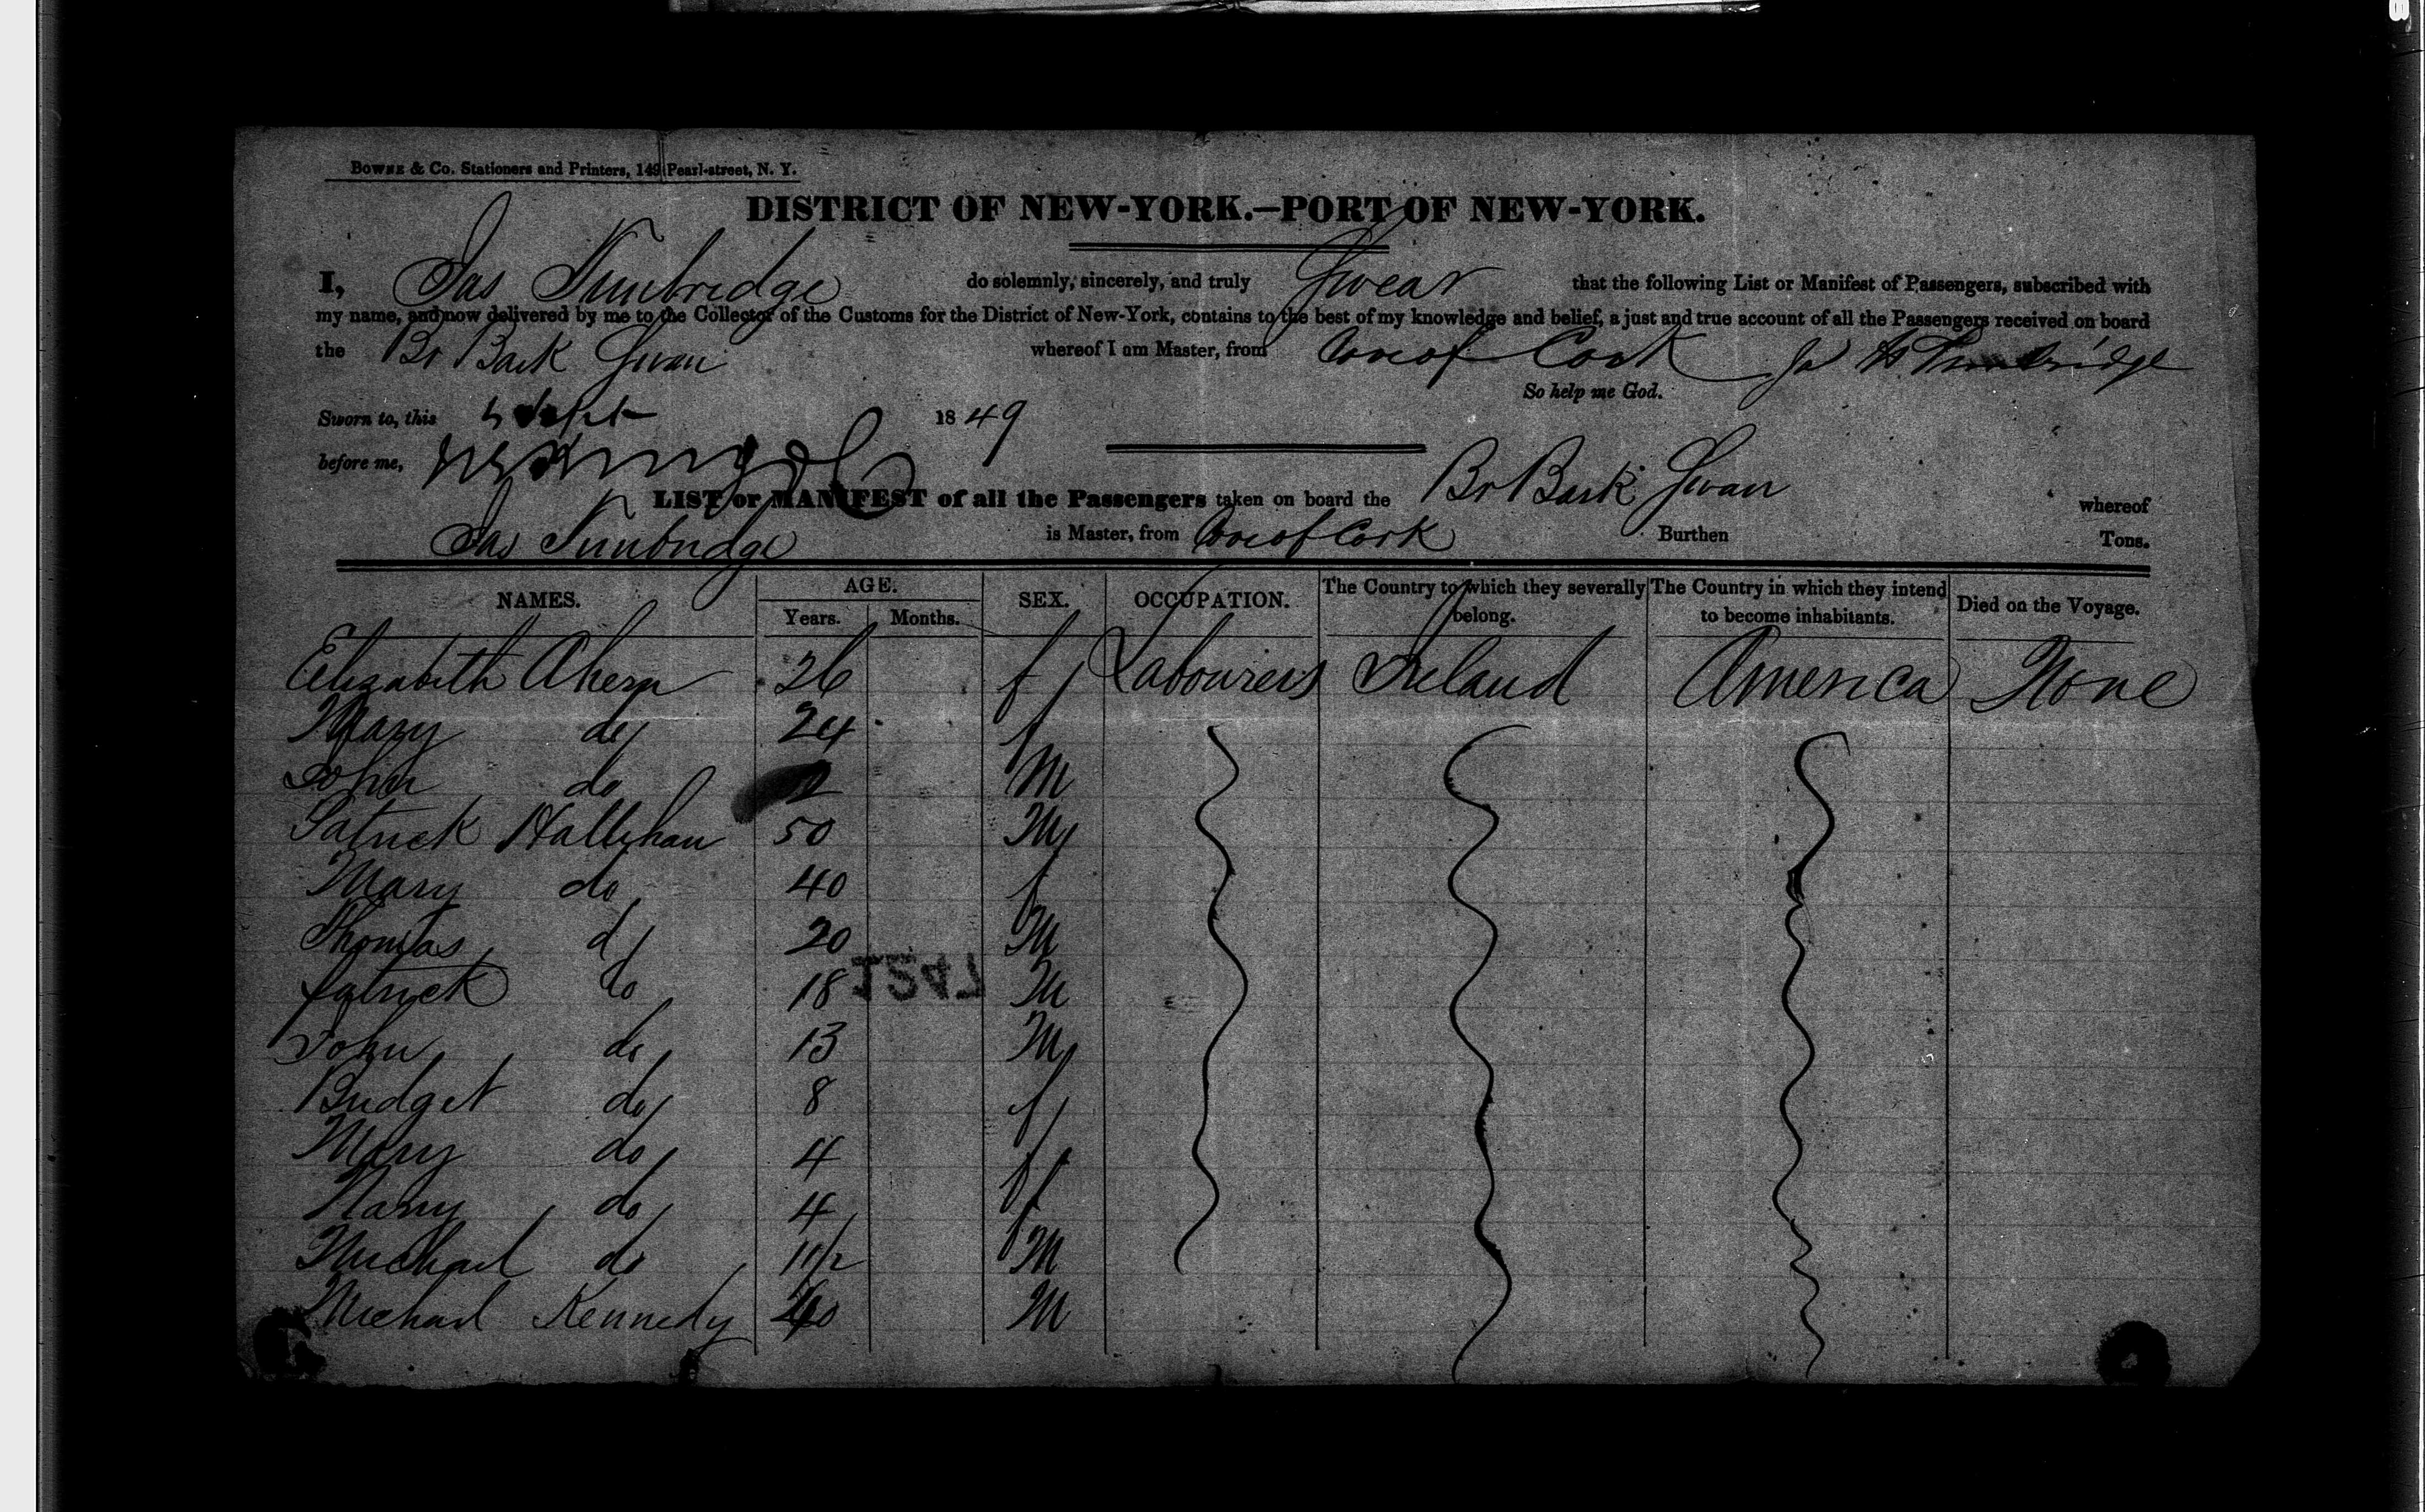 BOWNE & Co. Stationers and Printers, 149 Pearl-street, N. Y.
DISTRICT OF NEW-YORK.—PORT OF NEW-YORK.
I, Jas Tunbridge do solemnly, sincerely, and truly Swear that the following List or Manifest of Passengers, subscribed with
my name, and now delivered by me to the Collector of the Customs for the District of New-York, contains to the best of my knowledge and belief, a just and true account of all the Passengers received on board
the Br Bark Swan whereof I am Master, from Cove of Cork
So help me God.
Sworn to, this 5 Sept 1849
before me,
LIST or MANIFEST of all the Passengers taken on board the Br Bark Swan whereof
Jas Tunbridge is Master, from Cove of Cork Burthen Tons.
NAMES. AGE. SEX. OCCUPATION. The Country to which they severally belong. The Country in which they intend to become inhabitants. Died on the Voyage.
Years. Months.
Elizabeth Ahern 26 f Labourers Ireland America None
Mary do 24 f
John do 2 M
Patrick Hallihan 50 M
Mary do 40 f
Thomas do 20 M
Patrick do 18 M
1247
John do 13 M
Bridget do 8 f
Mary do 4 f
Nany do 4 f
Michael do 1 1/2 M
Michael Kennedy 40 M